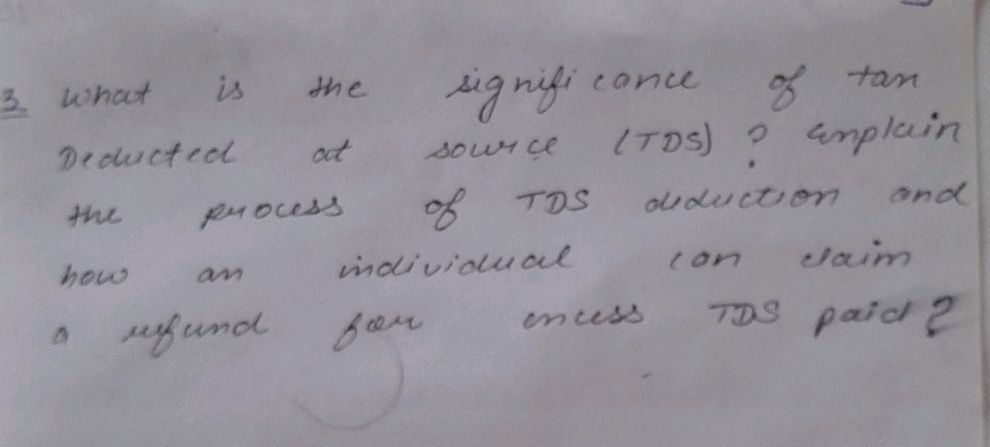 3. What is the significance of tax
Deducted at source (TDS) ? Explain
the process of TDS deduction and
how an individual can claim
a refund for excess TDS paid ?